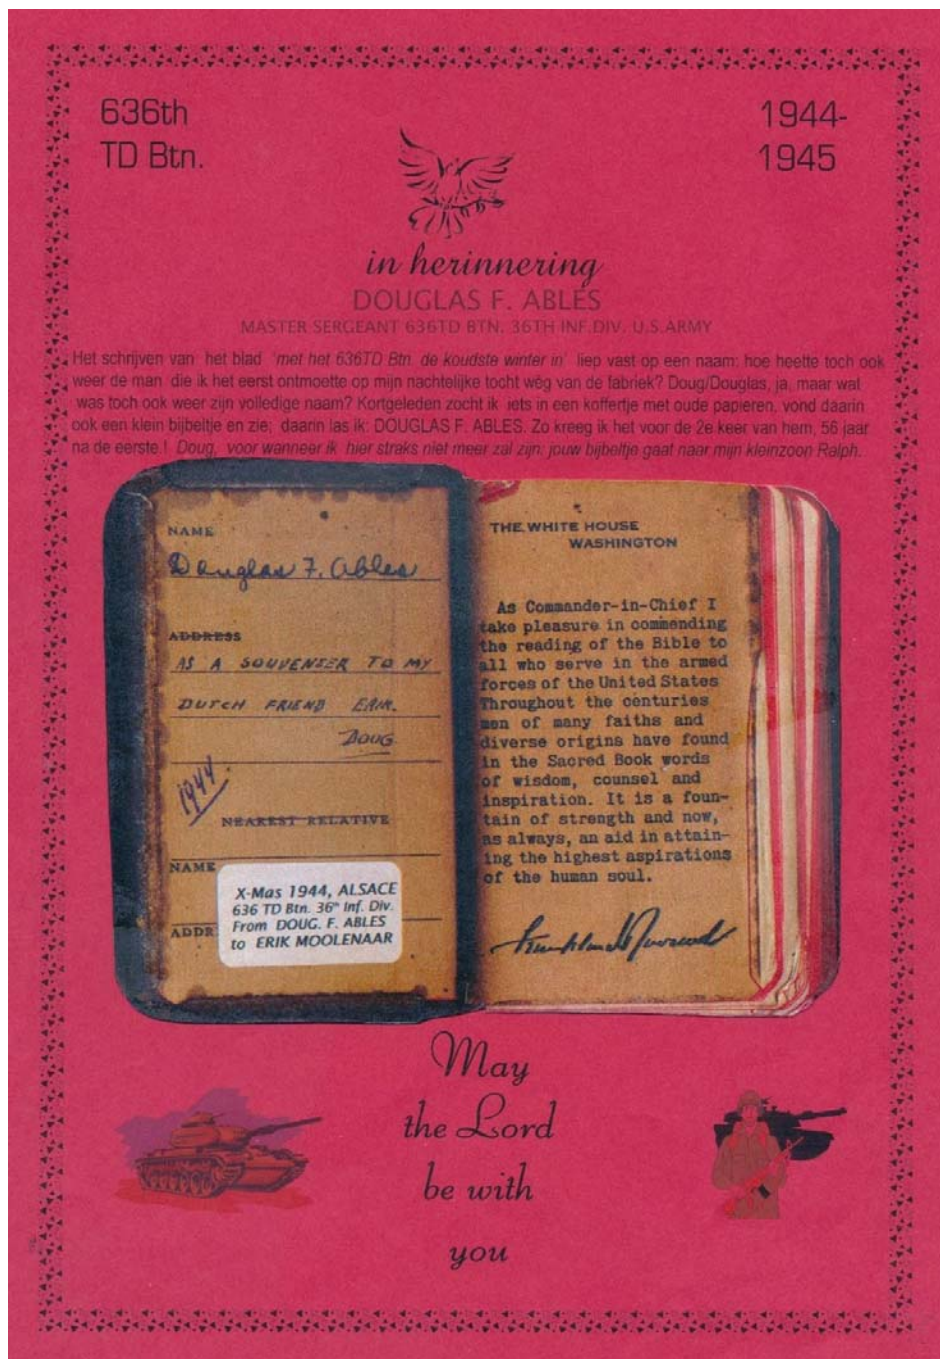 636th
TD Btn.
1944-
1945
in herinnering
DOUGLAS F. ABLES
MASTER SERGEANT 636TD BTN. 36TH INF.DIV. U.S.ARMY
Het schrijven van het blad 'met het 636TD Btn. de koudste winter in' liep vast op een naam: hoe heette toch ook
weer de man die ik het eerst ontmoette op mijn nachtelijke tocht weg van de fabriek? Doug/Douglas, ja, maar wat
was toch ook weer zijn volledige naam? Kortgeleden zocht ik iets in een koffertje met oude papieren, vond daarin
ook een klein bijbeltje en zie; daarin las ik: DOUGLAS F. ABLES. Zo kreeg ik het voor de 2e keer van hem, 56 jaar
na de eerste.! Doug, voor wanneer ik hier straks niet meer zal zijn: jouw bijbeltje gaat naar mijn kleinzoon Ralph.
NAME
Douglas F. Ables
ADDRESS
AS A SOUVENIER TO MY
DUTCH FRIEND ERIK.
DOUG
1944
NEAREST RELATIVE
NAME
ADDR
X-Mas 1944, ALSACE
636 TD Btn. 36th Inf. Div.
From DOUG. F. ABLES
to ERIK MOOLENAAR
THE WHITE HOUSE
WASHINGTON
As Commander-in-Chief I
take pleasure in commending
the reading of the Bible to
all who serve in the armed
forces of the United States
Throughout the centuries
men of many faiths and
diverse origins have found
in the Sacred Book words
of wisdom, counsel and
inspiration. It is a foun-
tain of strength and now,
as always, an aid in attain-
ing the highest aspirations
of the human soul.
Franklin D Roosevelt
May
the Lord
be with
you